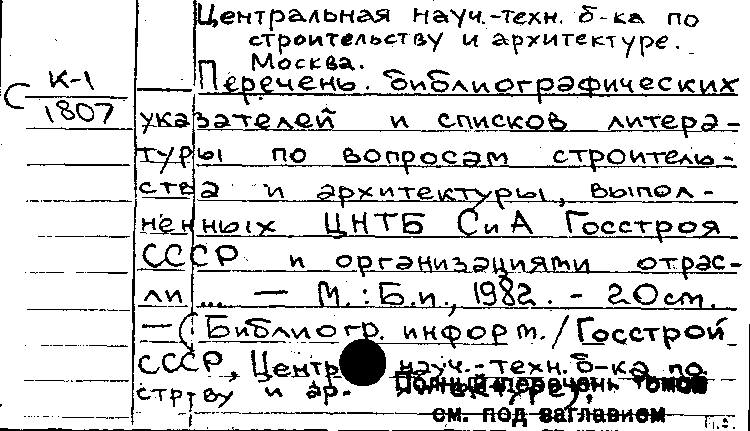 Центральная науч.-техн. б-ка по
строительству и архитектуре.
Москва.
С К-1
1807
Перечень библиографических
указателей и списков литера-
туры по вопросам строитель-
ства и архитектуры, выпол-
ненных ЦНТБ СиА Госстроя
СССР и организациями отрас-
ли ... — М.: Б.и., 1982. - 20 см.
— (Библиогр. информ. / Госстрой
СССР, Центр науч.-техн. б-ка по
стр-ву и ар-
Полный перечень томов
см. под заглавием